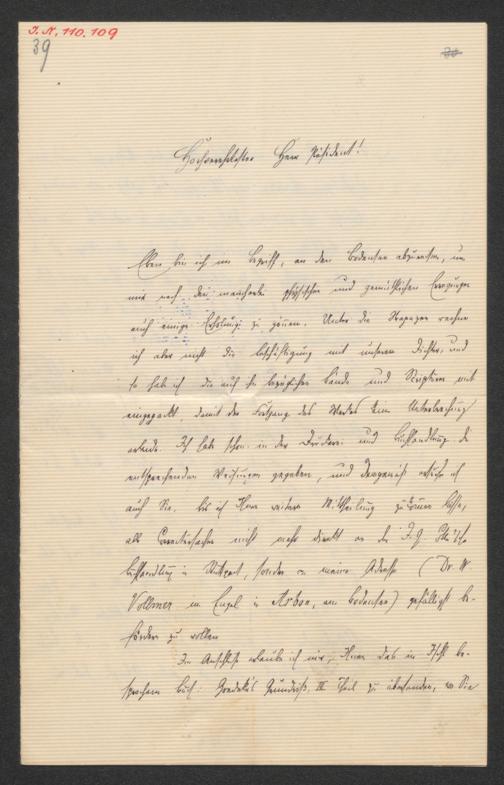 I.N. 110.109
39
Hochverehrtester Herr Präsident!
Eben bin ich im Begriff, an den Bodensee abzureisen, um
mir nach den mancherlei physischen und gemüthlichen Erregungen
auch einige Erholung zu gönnen. Unter die Strapazen rechne
ich aber nicht die Beschäftigung mit unserem Dichter, und
so hab ich die auf ihn bezüglichen Bände und Skripturen mit
eingepackt damit der Fortgang des Werkes keine Unterbrechung
erleide. Ich habe schon in der Druckerei und Buchhandlung die
entsprechenden Weisungen gegeben, und demgemäß ersuche ich
auch Sie, bis ich Ihnen weitere Mittheilung zukommen lasse,
alle Correctursachen nicht mehr direkt an die J. G.
Buchhandlung in Stuttgart, sondern an meine Adresse (Dr. W.
Vollmer im Engel in Arbon, am Bodensee) gefälligst be-
fördern zu wollen
Im Anschluß erlaube ich mir, Ihnen das in Ischl be-
sprochene Buch: Goedeke's Grundriß, III Theil zu übersenden, wo Sie